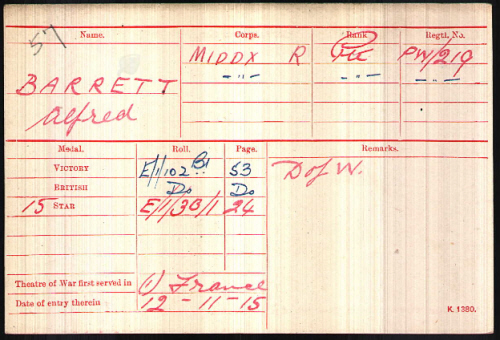 57
Name. Corps. Rank Regtl. No.
BARRETT MIDDX R Pte PW/219
Alfred -"- -"- -"-
Medal. Roll. Page. Remarks.
VICTORY E/1/102 B1 53 D of W.
BRITISH Do Do
15 STAR E/1/3B/1 24
Theatre of War first served in (1) France
Date of entry therein 12-11-15
K. 1380.